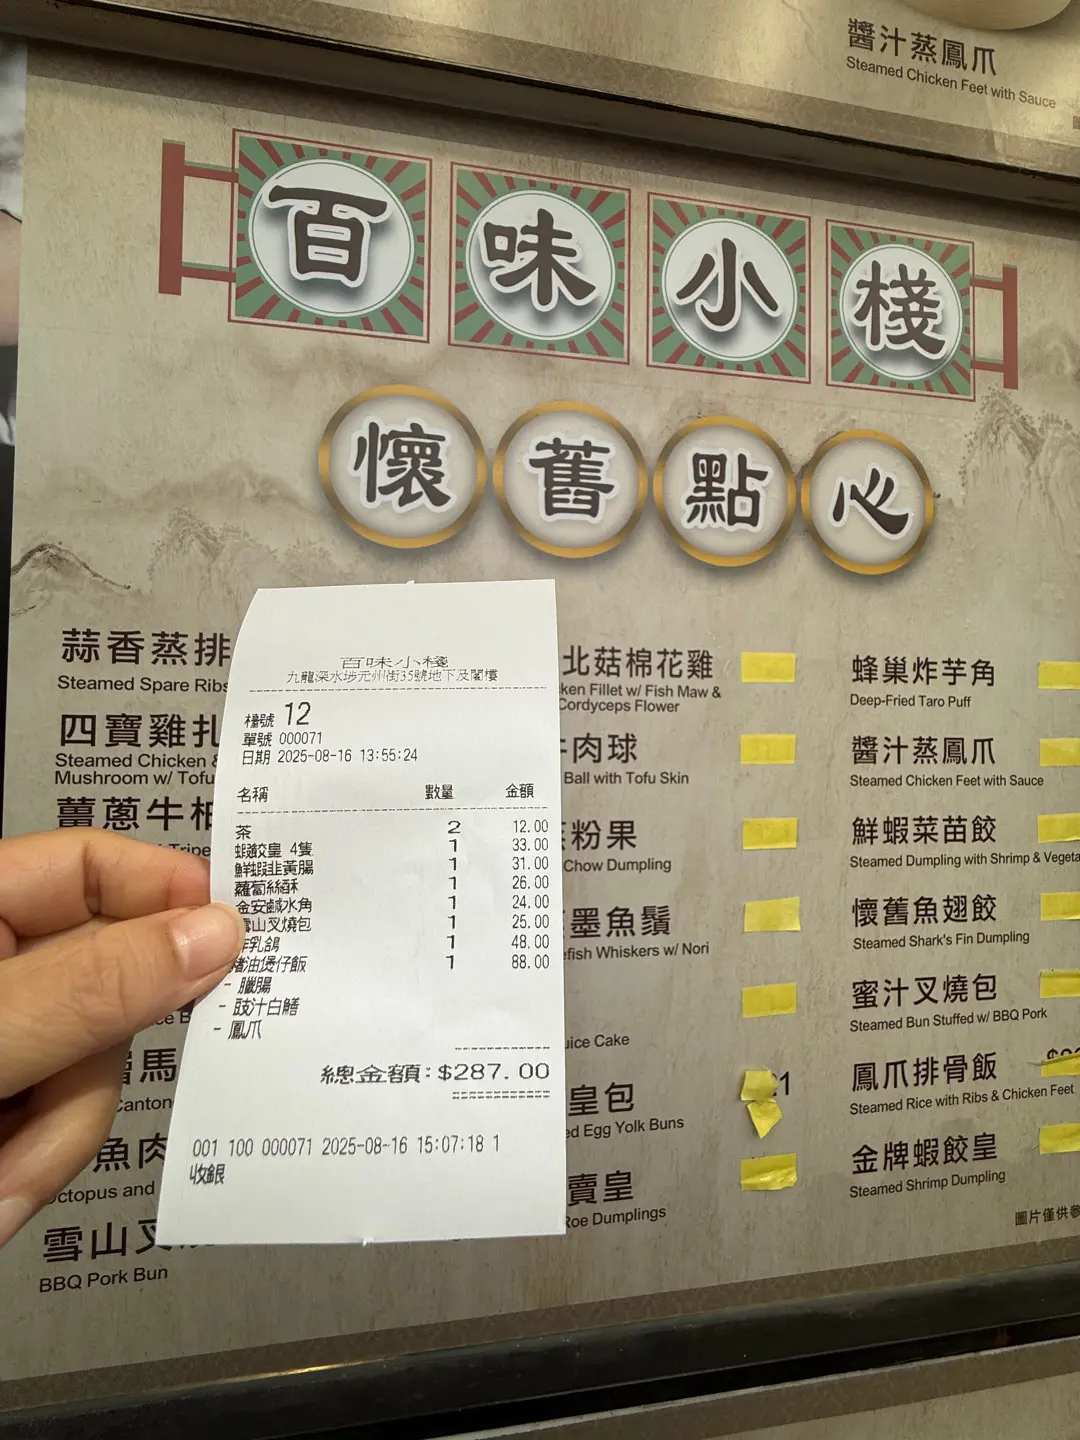 醬汁蒸鳳爪
Steamed Chicken Feet with Sauce
百味小棧
懷舊點心
蒜香蒸排
Steamed Spare Ribs
四寶雞扎
Steamed Chicken &
Mushroom w/ Tofu
薑蔥牛柏
Tripe
馬
Canton
魚肉
Octopus and
雪山叉
BBQ Pork Bun
百味小棧
九龍深水埗元州街35號地下及閣樓
檯號 12
單號 000071
日期 2025-08-16 13:55:24
名稱 數量 金額
茶 2 12.00
蝦餃皇 4隻 1 33.00
鮮蝦韭黃腸 1 31.00
蘿蔔絲酥 1 26.00
金安鹹水角 1 24.00
雪山叉燒包 1 25.00
炸乳鴿 1 48.00
豬油煲仔飯 1 88.00
- 臘腸
- 豉汁白鱔
- 鳳爪
總金額:$287.00
001 100 000071 2025-08-16 15:07:18 1
收銀
北菇棉花雞
ken Fillet w/ Fish Maw &
Cordyceps Flower
牛肉球
Ball with Tofu Skin
粉果
Chow Dumpling
墨魚鬚
efish Whiskers w/ Nori
uice Cake
皇包
ed Egg Yolk Buns
賣皇
Roe Dumplings
蜂巢炸芋角
Deep-Fried Taro Puff
醬汁蒸鳳爪
Steamed Chicken Feet with Sauce
鮮蝦菜苗餃
Steamed Dumpling with Shrimp & Vegeta
懷舊魚翅餃
Steamed Shark's Fin Dumpling
蜜汁叉燒包
Steamed Bun Stuffed w/ BBQ Pork
鳳爪排骨飯
Steamed Rice with Ribs & Chicken Feet
金牌蝦餃皇
Steamed Shrimp Dumpling
圖片僅供參